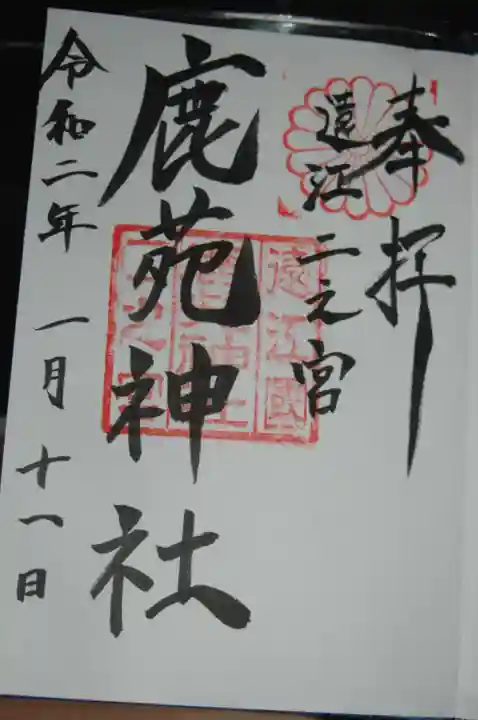 奉拝
遠江二之宮
鹿苑神社
令和二年 一月 十一日
遠江國